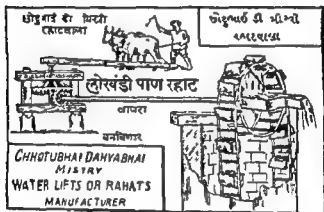 छोटुभाई डी मिस्त्री
રહાટવાલા
છોટુભાઈ ડી મીસ્ત્રી
રહાટવાલા
लोखंडी पाण रहाट
वापरा
बनविणार
CHHOTUBHAI DAHYABHAI
MISTRY
WATER LIFTS OR RAHATS
MANUFACTURER